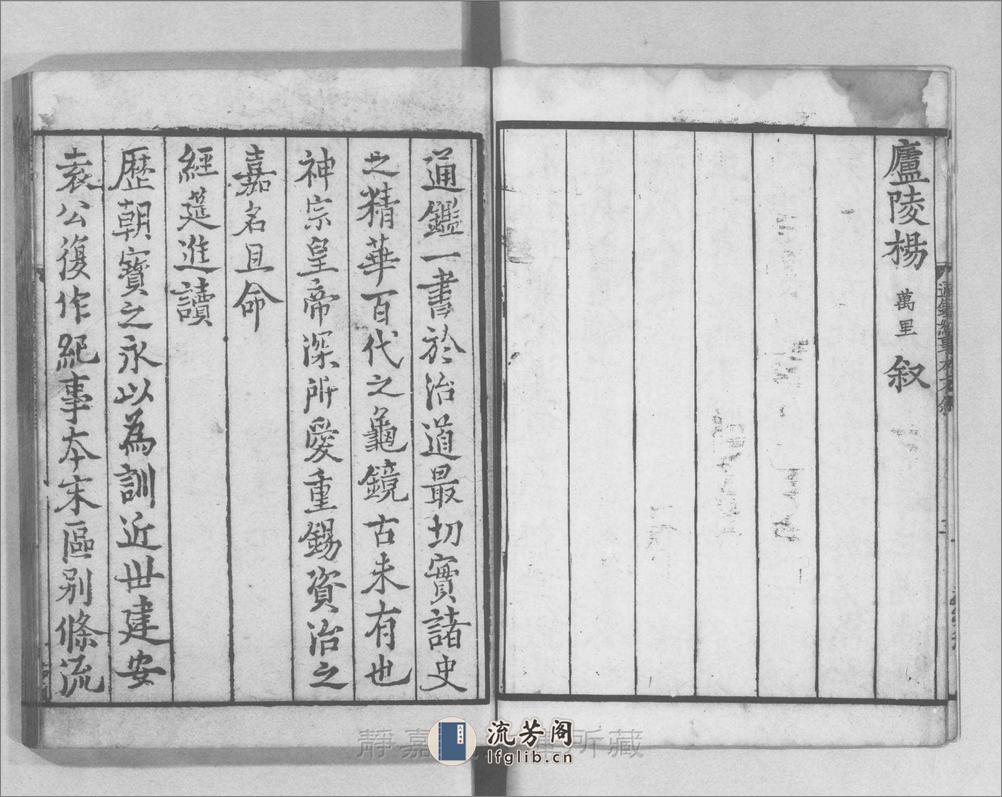 廬陵楊 萬里 叙
通鑑一書於治道最切實諸史
之精華百代之龜鏡古未有也
神宗皇帝深所愛重錫資治之
嘉名且命
經筵進讀
歷朝寶之永以為訓近世建安
袁公復作紀事本末區别條流
流芳阁
lfglib.cn